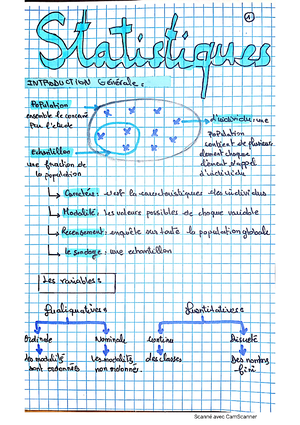 1
Statistiques
INTRODUCTION Générale :
Population
ensemble de concerné
par l'étude
d'individu : une
population
contient de plusieurs
élement chaque
élement s'appel
d'individu
Echantillon
une fraction de
la population
Caractère : c'est la caractéristiques des individus
Modalité : les valeurs possibles de chaque variable
Recensement : enquête sur toute la population globale
le sondage : une echantillon
Les variables :
Qualitatives
Quantitatives
Ordinale
Nominale
Continu
Discrète
les modalité
sont ordonnées
Les modalités
non ordonnés.
des classes
Des nombres
fini
Scanné avec CamScanner